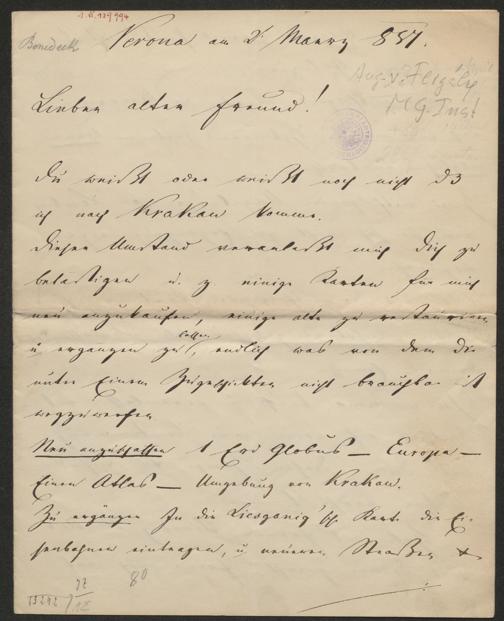 I. N. 129994
Benedeck
Verona am 2t Maerz 857.
Aug. v. Fligély
M. G. Inst
Lieber alter Freund!
Du weißt oder weißt noch nicht dß
ich nach Krakau komme.
Dieser Umstand veranlaßt mich Dich zu
belästigen u. z. einige Karten für mich
neu anzukaufen, einige alte zu restauriren
u ergänzen zu lassen, endlich was von dem Dir
unter Einem Zugeschickten nicht brauchbar ist
wegzuwerfen
Neu anzuschaffen 1 Erd Globus — Europa —
Einen Atlas — Umgebung von Krakau.
Zu ergänzen In die Liesganig'sch Karte die Ei-
senbahnen eintragen, u neueren Straßen
80